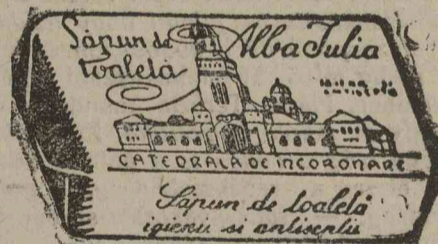 Săpun de Alba Julia
toaletă
CATEDRALA DE INCORONARE
Săpun de toaletă
igienic si antiseptic